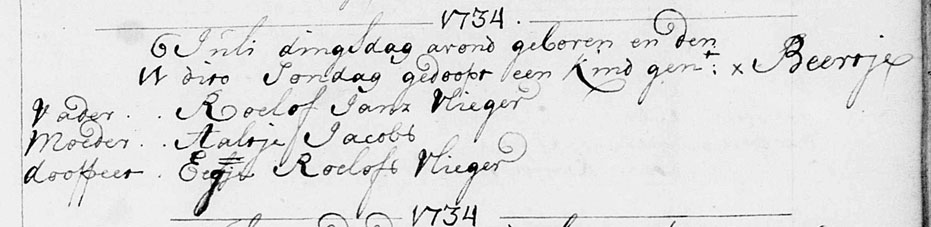 1734.
6 Juli dingsdag avond geboren en den
11 dito Sondag gedoopt een Kind gen^t: x Beertje
Vader . . Roelof Janz Vlieger
Moeder . . Aaltje Jacobs
doopeer . Eegje Roelofs Vlieger
1734